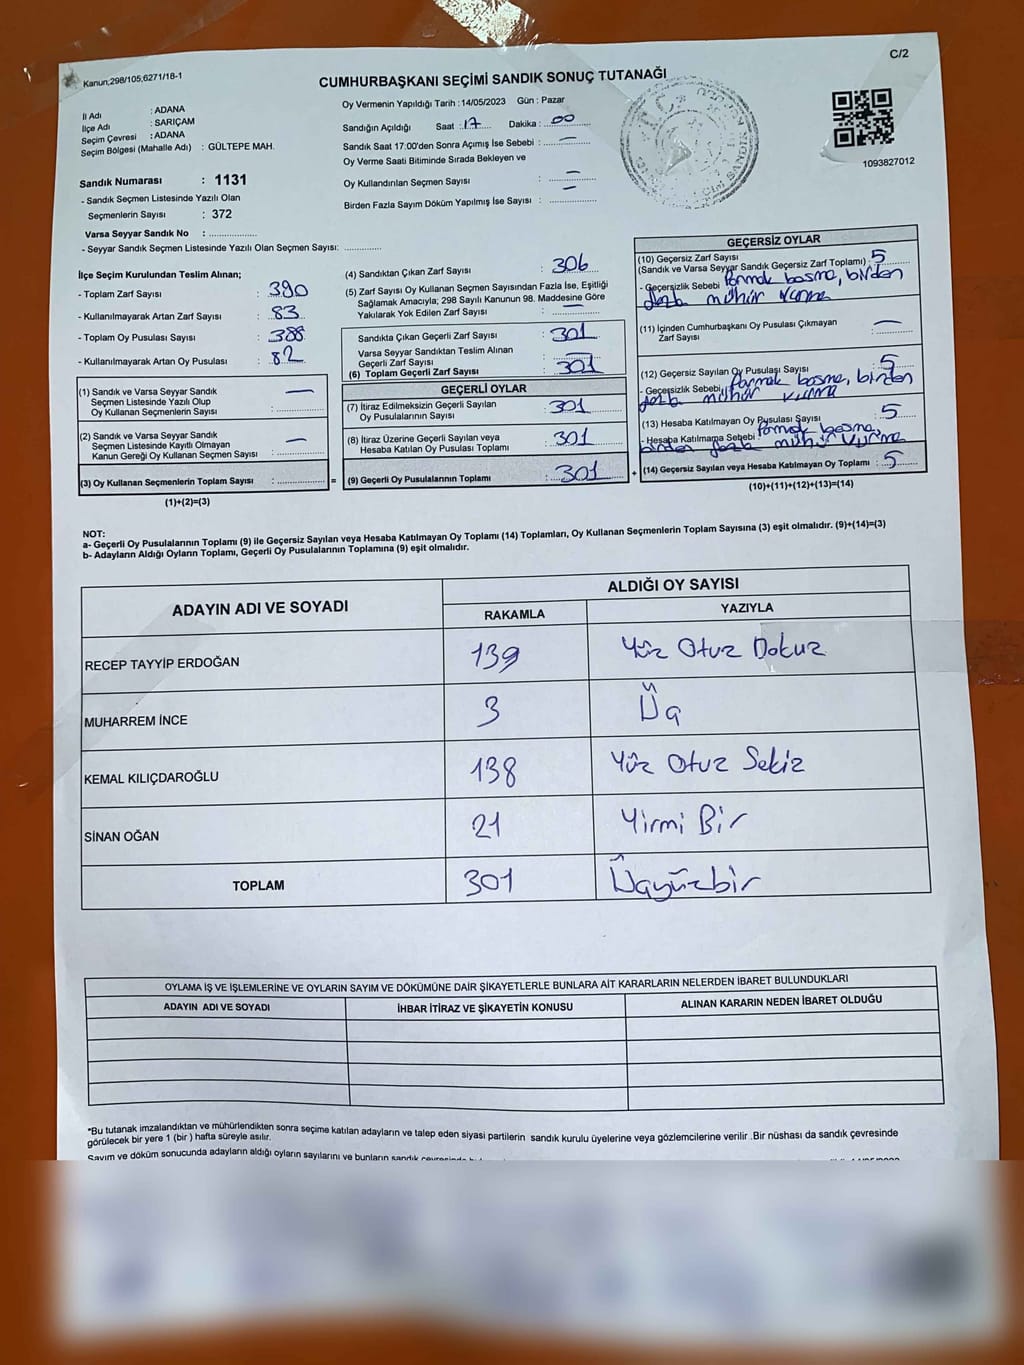 C/2
Kanun,298/105,6271/18-1
CUMHURBAŞKANI SEÇİMİ SANDIK SONUÇ TUTANAĞI
İl Adı : ADANA
İlçe Adı : SARIÇAM
Seçim Çevresi : ADANA
Seçim Bölgesi (Mahalle Adı) : GÜLTEPE MAH.
Sandık Numarası : 1131
- Sandık Seçmen Listesinde Yazılı Olan
Seçmenlerin Sayısı : 372
Varsa Seyyar Sandık No : ................
- Seyyar Sandık Seçmen Listesinde Yazılı Olan Seçmen Sayısı: ............
Oy Vermenin Yapıldığı Tarih : 14/05/2023 Gün : Pazar
Sandığın Açıldığı Saat : 17 Dakika : 00
Sandık Saat 17:00'den Sonra Açımış İse Sebebi : —
Oy Verme Saati Bitiminde Sırada Bekleyen ve
Oy Kullandırılan Seçmen Sayısı : —
Birden Fazla Sayım Döküm Yapılmış İse Sayısı : —
1093827012
İlçe Seçim Kurulundan Teslim Alınan;
- Toplam Zarf Sayısı : 390
- Kullanılmayarak Artan Zarf Sayısı : 83
- Toplam Oy Pusulası Sayısı : 388
- Kullanılmayarak Artan Oy Pusulası : 82
(1) Sandık ve Varsa Seyyar Sandık
Seçmen Listesinde Yazılı Olup
Oy Kullanan Seçmenlerin Sayısı : —
(2) Sandık ve Varsa Seyyar Sandık
Seçmen Listesinde Kayıtlı Olmayan
Kanun Gereği Oy Kullanan Seçmen Sayısı : —
(3) Oy Kullanan Seçmenlerin Toplam Sayısı : ............ =
(1)+(2)=(3)
(4) Sandıktan Çıkan Zarf Sayısı : 306
(5) Zarf Sayısı Oy Kullanan Seçmen Sayısından Fazla İse, Eşitliği
Sağlamak Amacıyla; 298 Sayılı Kanunun 98. Maddesine Göre
Yakılarak Yok Edilen Zarf Sayısı : —
Sandıkta Çıkan Geçerli Zarf Sayısı : 301
Varsa Seyyar Sandıktan Teslim Alınan
Geçerli Zarf Sayısı : —
(6) Toplam Geçerli Zarf Sayısı : 301
GEÇERLİ OYLAR
(7) İtiraz Edilmeksizin Geçerli Sayılan
Oy Pusulalarının Sayısı : 301
(8) İtiraz Üzerine Geçerli Sayılan veya
Hesaba Katılan Oy Pusulası Toplamı : 301
(9) Geçerli Oy Pusulalarının Toplamı : 301 +
GEÇERSİZ OYLAR
(10) Geçersiz Zarf Sayısı
(Sandık ve Varsa Seyyar Sandık Geçersiz Zarf Toplamı) : 5
- Geçersizlik Sebebi Parmak basma, birden
fazla mühür vurma
(11) İçinden Cumhurbaşkanı Oy Pusulası Çıkmayan
Zarf Sayısı : —
(12) Geçersiz Sayılan Oy Pusulası Sayısı : 5
- Geçersizlik Sebebi Parmak basma, birden
fazla mühür vurma
(13) Hesaba Katılmayan Oy Pusulası Sayısı : 5
- Hesaba Katılmama Sebebi : Parmak basma,
birden fazla mühür vurma
(14) Geçersiz Sayılan veya Hesaba Katılmayan Oy Toplamı : 5
(10)+(11)+(12)+(13)=(14)
NOT:
a- Geçerli Oy Pusulalarının Toplamı (9) ile Geçersiz Sayılan veya Hesaba Katılmayan Oy Toplamı (14) Toplamları, Oy Kullanan Seçmenlerin Toplam Sayısına (3) eşit olmalıdır. (9)+(14)=(3)
b- Adayların Aldığı Oyların Toplamı, Geçerli Oy Pusulalarının Toplamına (9) eşit olmalıdır.
ADAYIN ADI VE SOYADI
ALDIĞI OY SAYISI
RAKAMLA YAZIYLA
RECEP TAYYİP ERDOĞAN 139 Yüz Otuz Dokuz
MUHARREM İNCE 3 Üç
KEMAL KILIÇDAROĞLU 138 Yüz Otuz Sekiz
SİNAN OĞAN 21 Yirmi Bir
TOPLAM 301 Üçyüzbir
OYLAMA İŞ VE İŞLEMLERİNE VE OYLARIN SAYIM VE DÖKÜMÜNE DAİR ŞİKAYETLERLE BUNLARA AİT KARARLARIN NELERDEN İBARET BULUNDUKLARI
ADAYIN ADI VE SOYADI İHBAR İTİRAZ VE ŞİKAYETİN KONUSU ALINAN KARARIN NEDEN İBARET OLDUĞU
*Bu tutanak imzalandıktan ve mühürlendikten sonra seçime katılan adayların ve talep eden siyasi partilerin sandık kurulu üyelerine veya gözlemcilerine verilir .Bir nüshası da sandık çevresinde
görülecek bir yere 1 (bir ) hafta süreyle asılır.
Sayım ve döküm sonucunda adayların aldığı oyların sayılarını ve bunların sandık